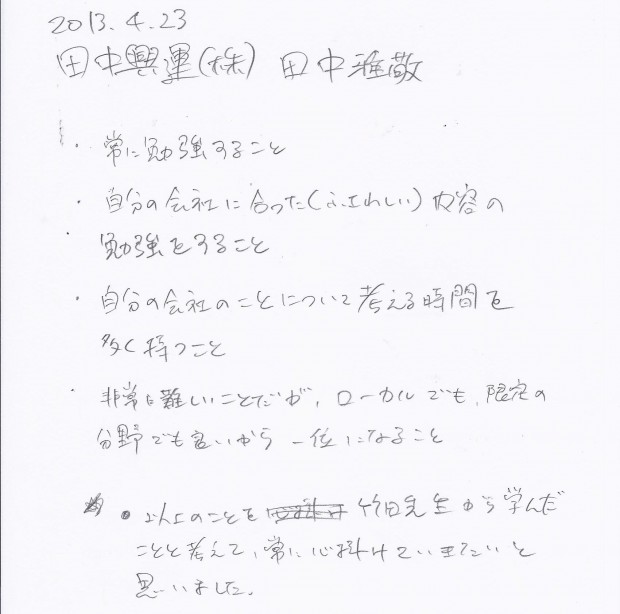 2013.4.23
田中興運(株) 田中雅敬
・常に勉強すること
・自分の会社に合った(ふさわしい)内容の
・勉強をすること
・自分の会社のことについて考える時間を
多く持つこと
・非常に難しいことだが、ローカルでも、限定の
分野でも良いから一位になること
・以上のことを 竹田先生から学んだ
ことと考えて、常に心掛けていきたいと
思いました。